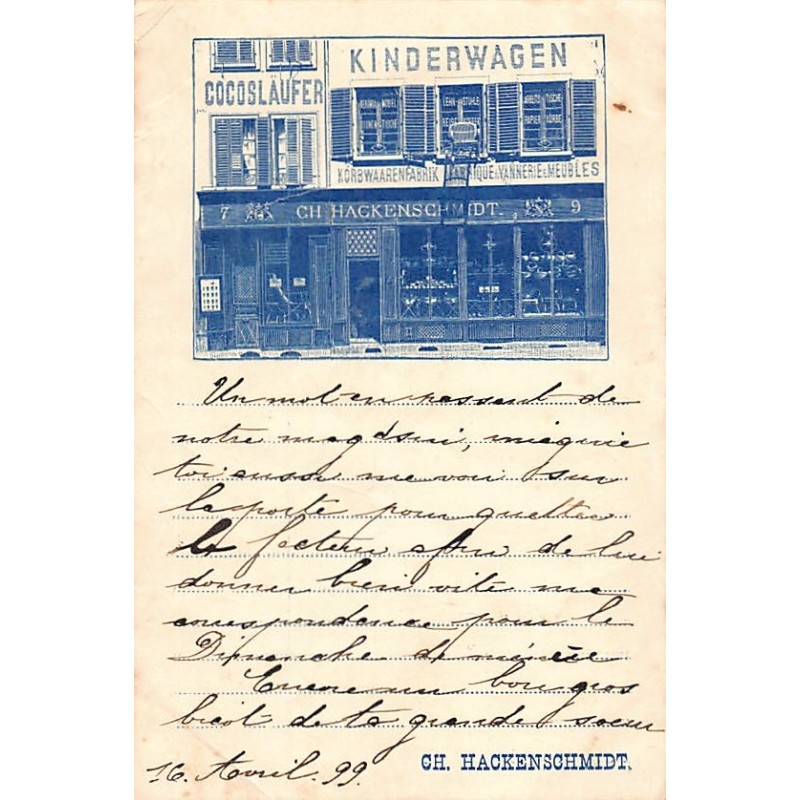 KINDERWAGEN
COCOSLÄUFER
KORBWAARENFABRIK FABRIQUE VANNERIE MEUBLES
7 CH HACKENSCHMIDT. 9
Un mot en passant de
notre magasin,
toi me sur
la porte pour guetter
le facteur afin de lui
donner bien vite ma
correspondance pour le
Dimanche de
Encore un bon gros
bicot de ta grande soeur
16. Avril. 99.
CH. HACKENSCHMIDT.